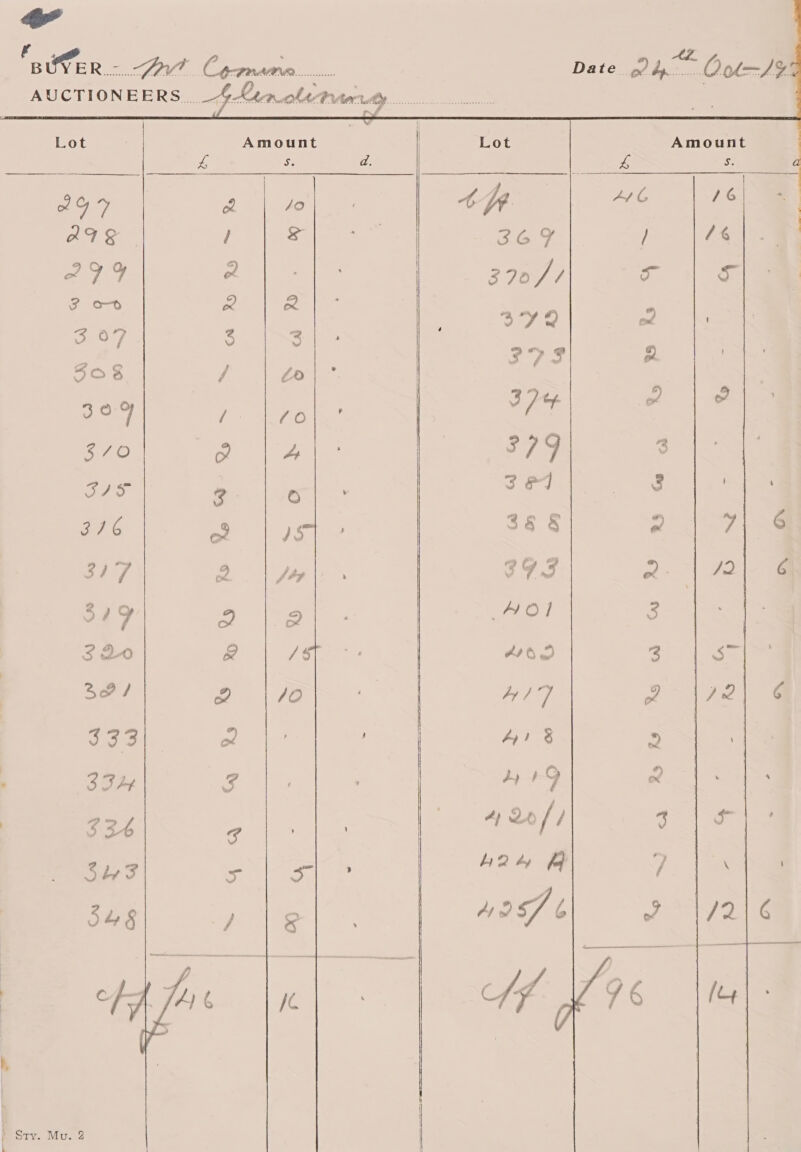 BUYER - Mr Comins
Date 24th Oct-19
AUCTIONEERS Glendining
Lot Amount
£ s. d.
297 2 10 .
298 1 8 . .
299 2 . .
300 2 2 .
307 3 3 .
308 1 10 .
309 1 10 .
310 2 4 .
315 3 0 .
316 2 15 .
317 2 14 .
319 2 2 .
320 2 15 .
321 2 10 .
333 2 . .
334 3 . .
336 3 . .
343 5 5 .
348 1 8 .
c/f £46 16 .
Lot Amount
£ s.
b/f 46 16 .
369 1 16 .
370/1 5 5
372 2 .
373 2 . .
374 2 2 .
379 3 . .
381 3 . .
388 2 7 6
393 2 12 6
401 3 . .
402 3 5 .
417 2 12 6
418 2 .
419 2 . .
420/1 3 5 .
424 A 7 . .
425/6 2 12 6
c/f £96 14 .
Sty. Mu. 2